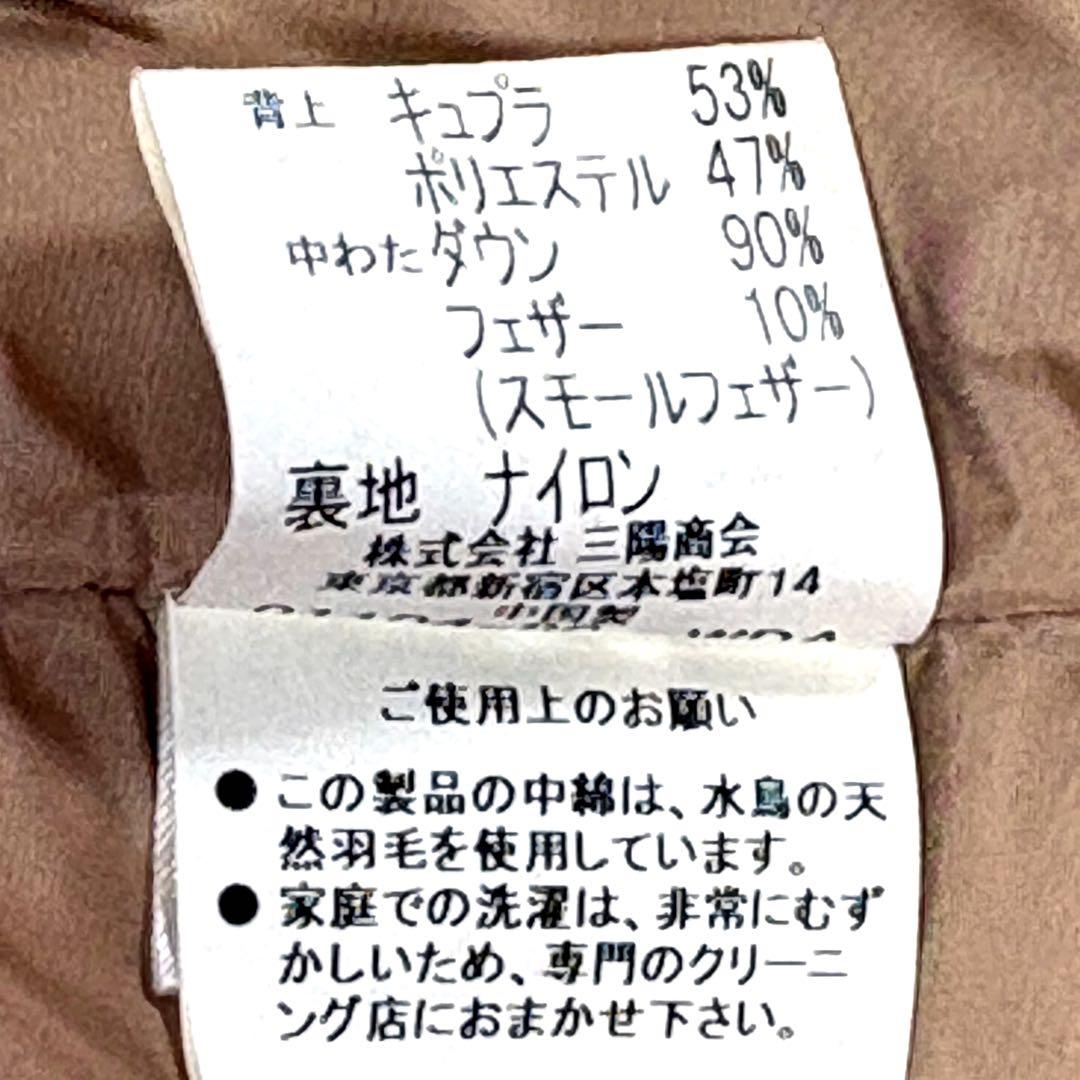 背上 キュプラ 53%
ポリエステル 47%
中わた ダウン 90%
フェザー 10%
(スモールフェザー)
裏地 ナイロン
株式会社 三陽商会
東京都新宿区本塩町14
中国製
ご使用上のお願い
● この製品の中綿は、水鳥の天
然羽毛を使用しています。
● 家庭での洗濯は、非常にむず
かしいため、専門のクリーニ
ング店におまかせ下さい。